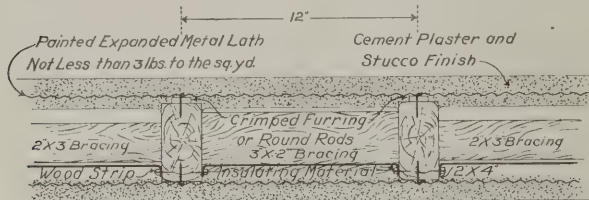 12"
Painted Expanded Metal Lath
Not Less than 3 lbs. to the sq.yd.
Cement Plaster and
Stucco Finish
Crimped Furring
or Round Rods
2X3 Bracing
3X2 Bracing
2X3 Bracing
Wood Strip
Insulating Material
2X4"